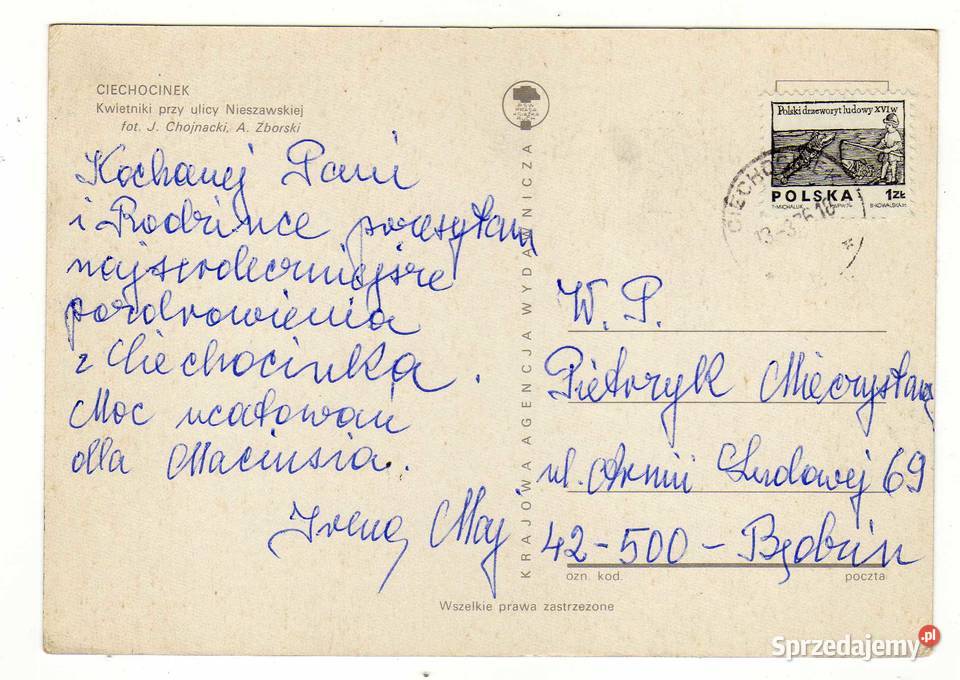 CIECHOCINEK
Kwietniki przy ulicy Nieszawskiej
fot. J. Chojnacki, A. Zborski
Kochanej Pani
i Rodzince przesyłam
najserdeczniejsze
pozdrowienia
z Ciechocinka.
Moc ucałowań
dla Maciusia.
Irena Maj
KRAJOWA AGENCJA WYDAWNICZA
RSW
PRASA
KSIĄŻKA
RUCH
Polski drzeworyt ludowy XVI w
POLSKA 1ZŁ
T·MICHALUK
B·KOWALSKA
CIECHOC
W. P.
Pietrzyk Mieczysław
ul. Armii Ludowej 69
42-500 - Będzin
ozn. kod. poczta
Wszelkie prawa zastrzeżone
Sprzedajemy.pl